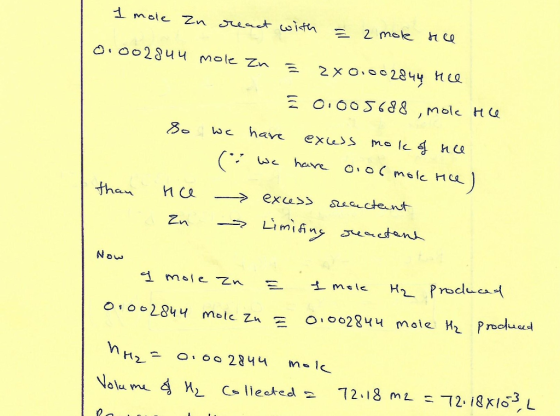 1 mole Zn react with ≡ 2 mole HCl
0.002844 mole Zn ≡ 2×0.002844 HCl
≡ 0.005688, mole HCl
So we have excess mole of HCl
(∵ we have 0.06 mole HCl)
than HCl → excess reactant
Zn → Limiting reactant
Now
1 mole Zn ≡ 1 mole H₂ produced
0.002844 mole Zn ≡ 0.002844 mole H₂ produced
nH₂ = 0.002844 mole
Volume of H₂ Collected = 72.18 mL = 72.18×10⁻³, L